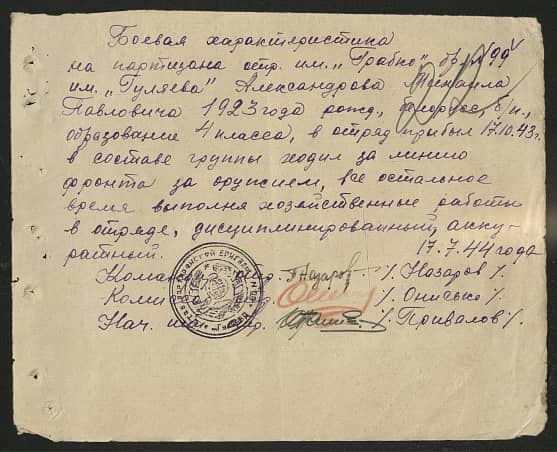 Боевая характеристика
на партизана отр. им. „Грабко" бр. № 99
им. „Гуляева" Александрова Михаила
Павловича 1923 года рожд., б/п.,
образование 4 класса, в отряд прибыл 17.10.43г.
в составе группы ходил за линию
фронта за оружием, все остальное
время выполнял хозяйственные работы
в отряде, дисциплинированный, акку-
ратный. 17.7.44 года
Назаров /. Назаров /.
/. Онисько /.
Нач. /. Привалов /.